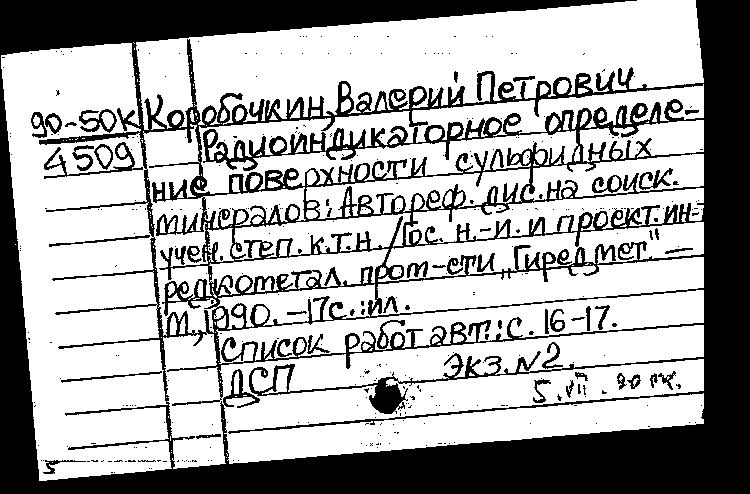 90-50К Коробочкин, Валерий Петрович.
4509 Радиоиндикаторное определе-
ние поверхности сульфидных
минералов: Автореф. дис. на соиск.
учен. степ. к.т.н. / Гос. н.-и. и проект. ин-т
редкометал. пром-сти „Гиредмет." —
М., 1990. – 17с. : ил.
Список работ авт.: с. 16-17.
ДСП Экз. N2.
5. VII. 90
5